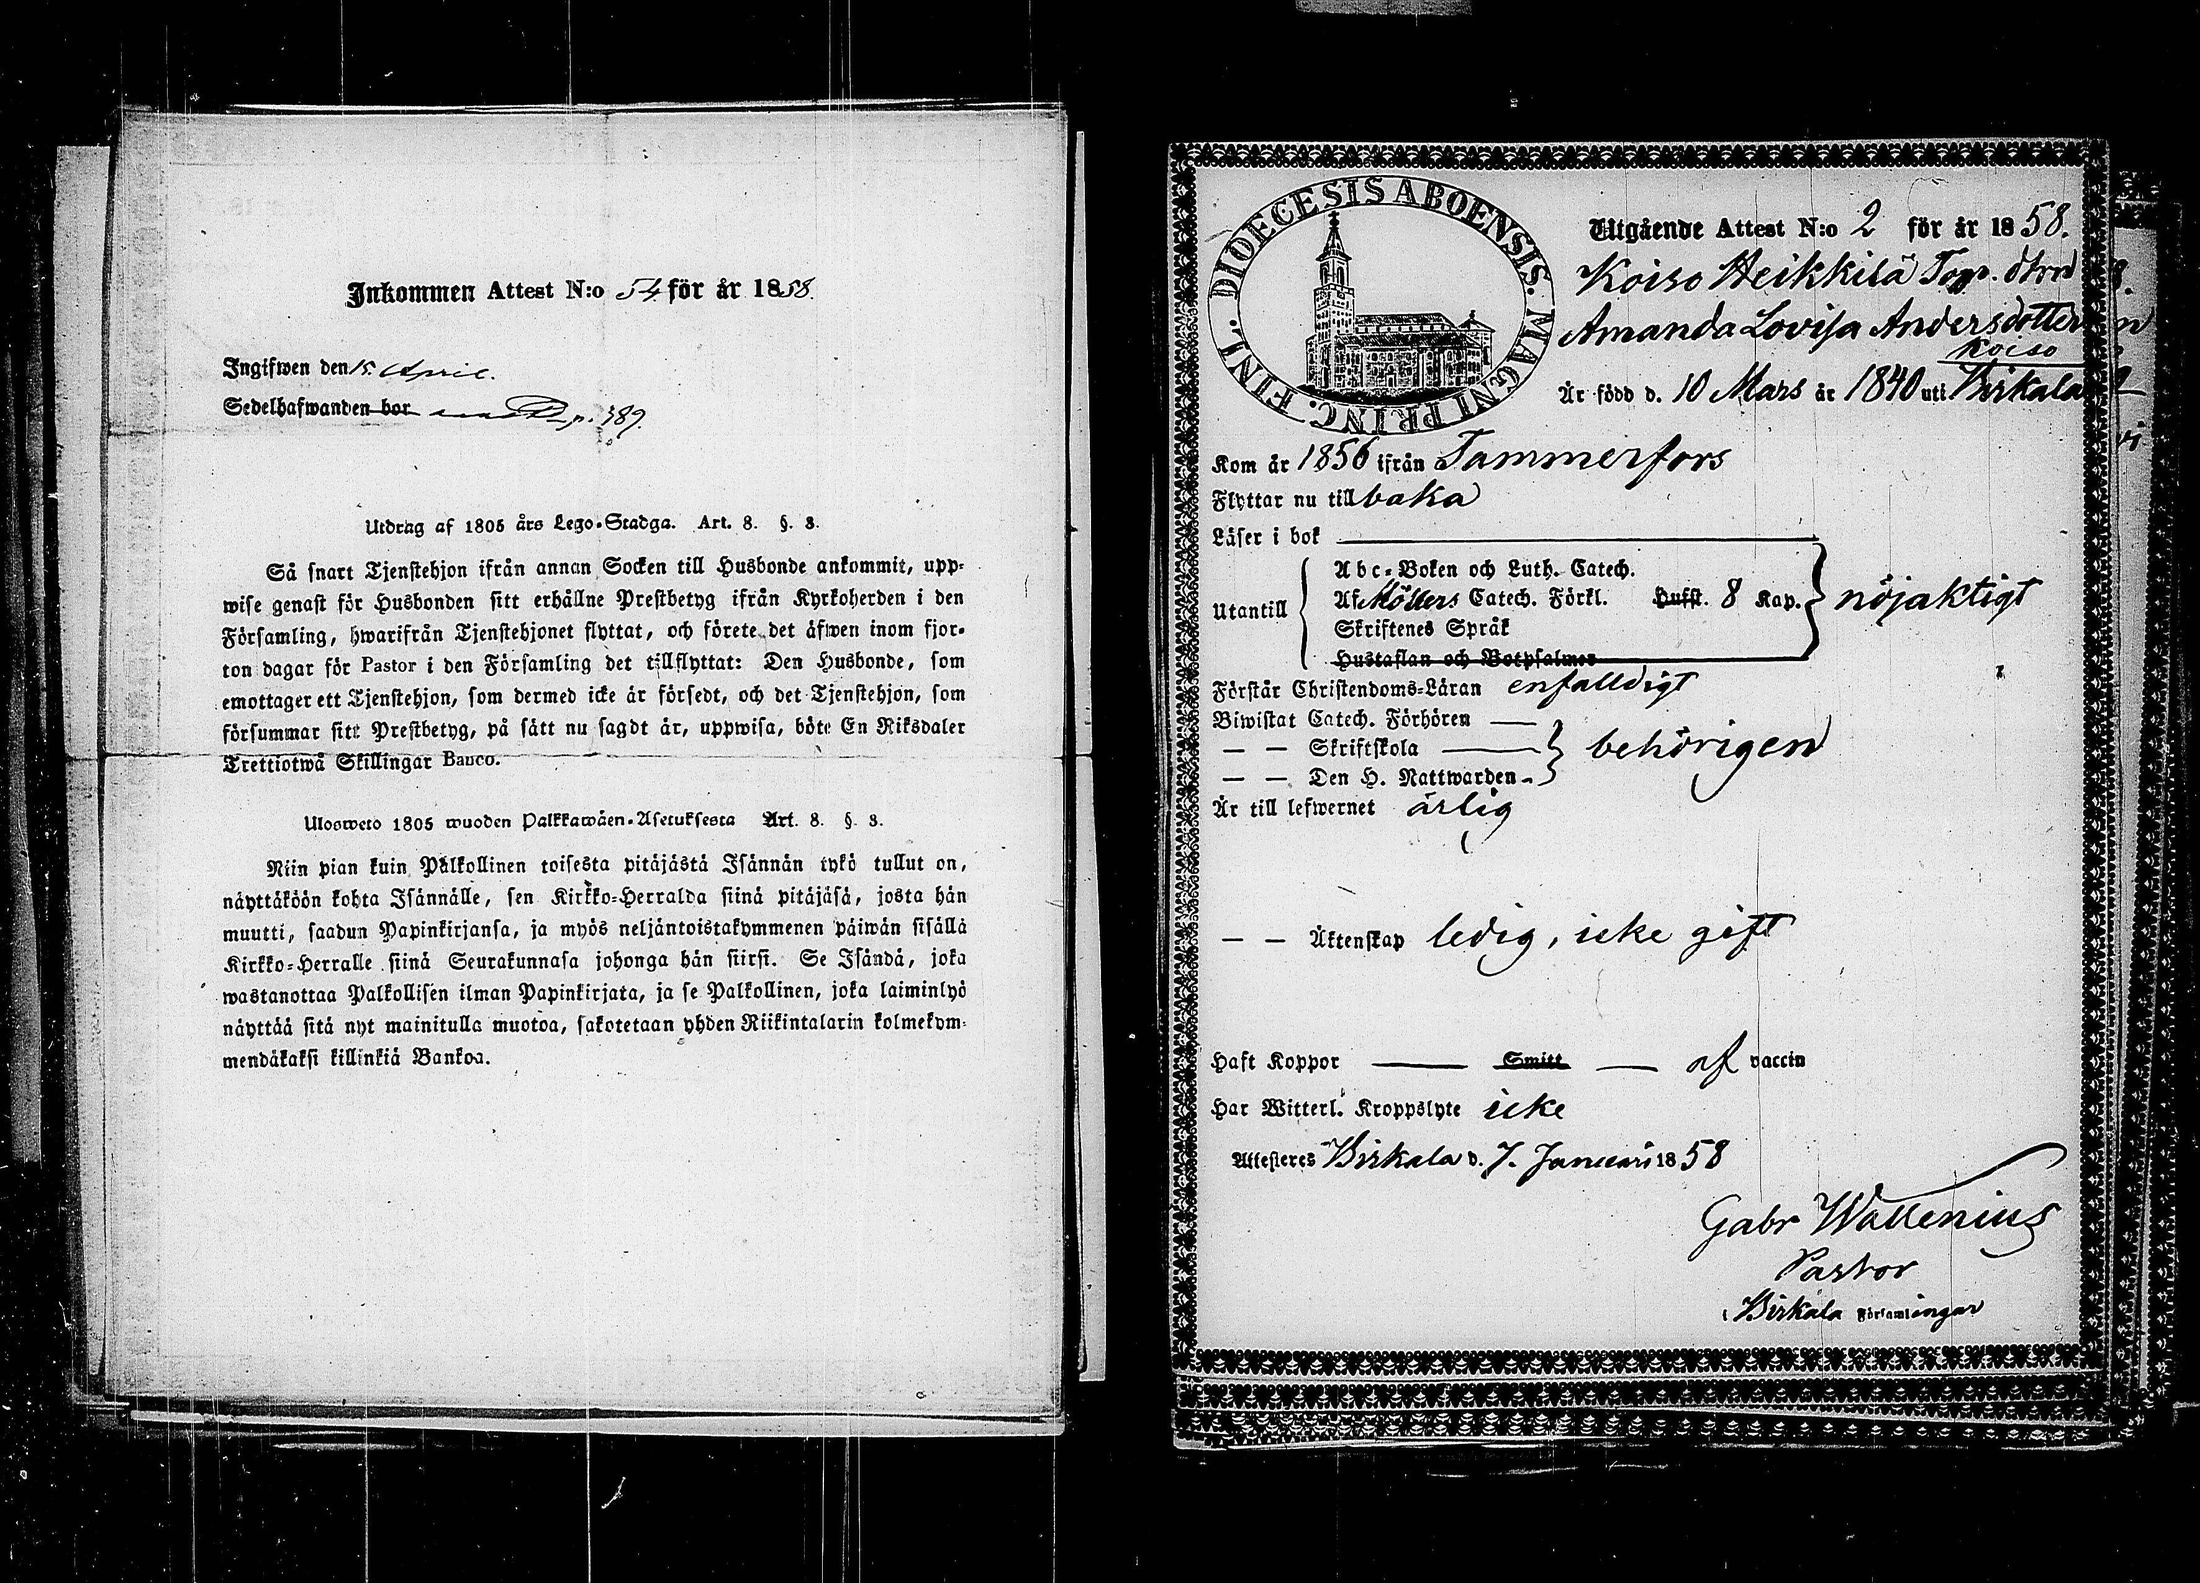 Inkommen Attest N:o 54 för år 1858.
Ingifwen den 15 April.
Sedelhafwanden bor p. 389.
Utdrag af 1805 års Lego-Stadga. Art. 8. §. 8.
Så snart Tjenstehjon ifrån annan Socken till Husbonde ankommit, upp-
wise genast för Husbonden sitt erhållne Prestbetyg ifrån Kyrkoherden i den
Församling, hwarifrån Tjenstehjonet flyttat, och förete det äfwen inom fjor-
ton dagar för Pastor i den Församling det tillflyttat: Den Husbonde, som
emottager ett Tjenstehjon, som dermed icke är försedt, och det Tjenstehjon, som
försummar sitt Prestbetyg, på sätt nu sagdt är, uppwisa, böte En Riksdaler
Trettiotwå Skillingar Banco.
Ulosweto 1805 wuoden Palkkawäen-Asetuksesta Art. 8. §. 8.
Niin pian kuin Palkollinen toisesta pitäjästä Isännän tykö tullut on,
näyttäköön kohta Isännälle, sen Kirkko-Herralda siinä pitäjäsä, josta hän
muutti, saadun Papinkirjansa, ja myös neljäntoistakymmenen päiwän sisällä
Kirkko-Herralle siinä Seurakunnasa johonga hän siirsi. Se Isändä, joka
wastanottaa Palkollisen ilman Papinkirjata, ja se Palkollinen, joka laiminlyö
näyttää sitä nyt mainitulla muotoa, sakotetaan yhden Riikintalarin kolmekym-
mendäkaksi killinkiä Bankoa.
DIOECESIS ABOENSIS. MAGNI PRINC. FINL.
Utgående Attest N:o 2 för år 1858.
Koiso Heikkilä Torp. dtrn
Amanda Lovisa Andersdotter
Koiso
Är född d. 10 Mars år 1840 uti Birkala
Kom år 1856 ifrån Tammerfors
Flyttar nu tillbaka
Läser i bok
Abc-Boken och Luth. Catech.
Utantill Af Möllers Catech. Förkl. Hufst. 8 Kap. nöjaktigt
Skriftenes Språk
Hustaflan och Botpsalmer
Förstår Christendoms-Läran enfalldigt
Biwistat Catech. Förhören
— — Skriftskola behörigen
— — Den H. Nattwarden
Är till lefwernet ärlig
— — Äktenskap ledig, icke gift
Haft Koppor — Smitt — af vaccin
Har Witterl. Kroppslyte icke
Attesteres Birkala d. 7. Januari 1858
Gabr Wallenius
Pastor
i Birkala Församlingar